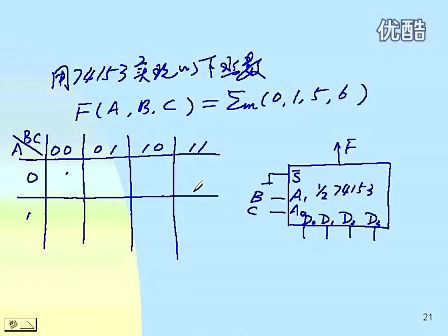 优酷
用74153实现以下函数
F(A,B,C)=Σm(0,1,5,6)
A BC 00 01 10 11
0
1
F
S̄
B A₁ ½74153
C A₀
D₀ D₁ D₂ D₃
21